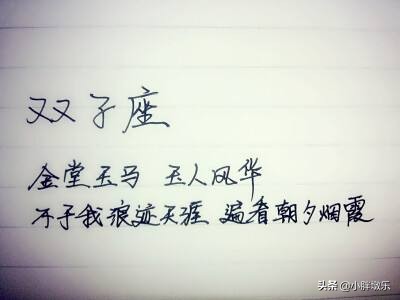 双子座
金堂玉马 玉人风华
不予我浪迹天涯 遍看朝夕烟霞
头条 @小胖墩乐